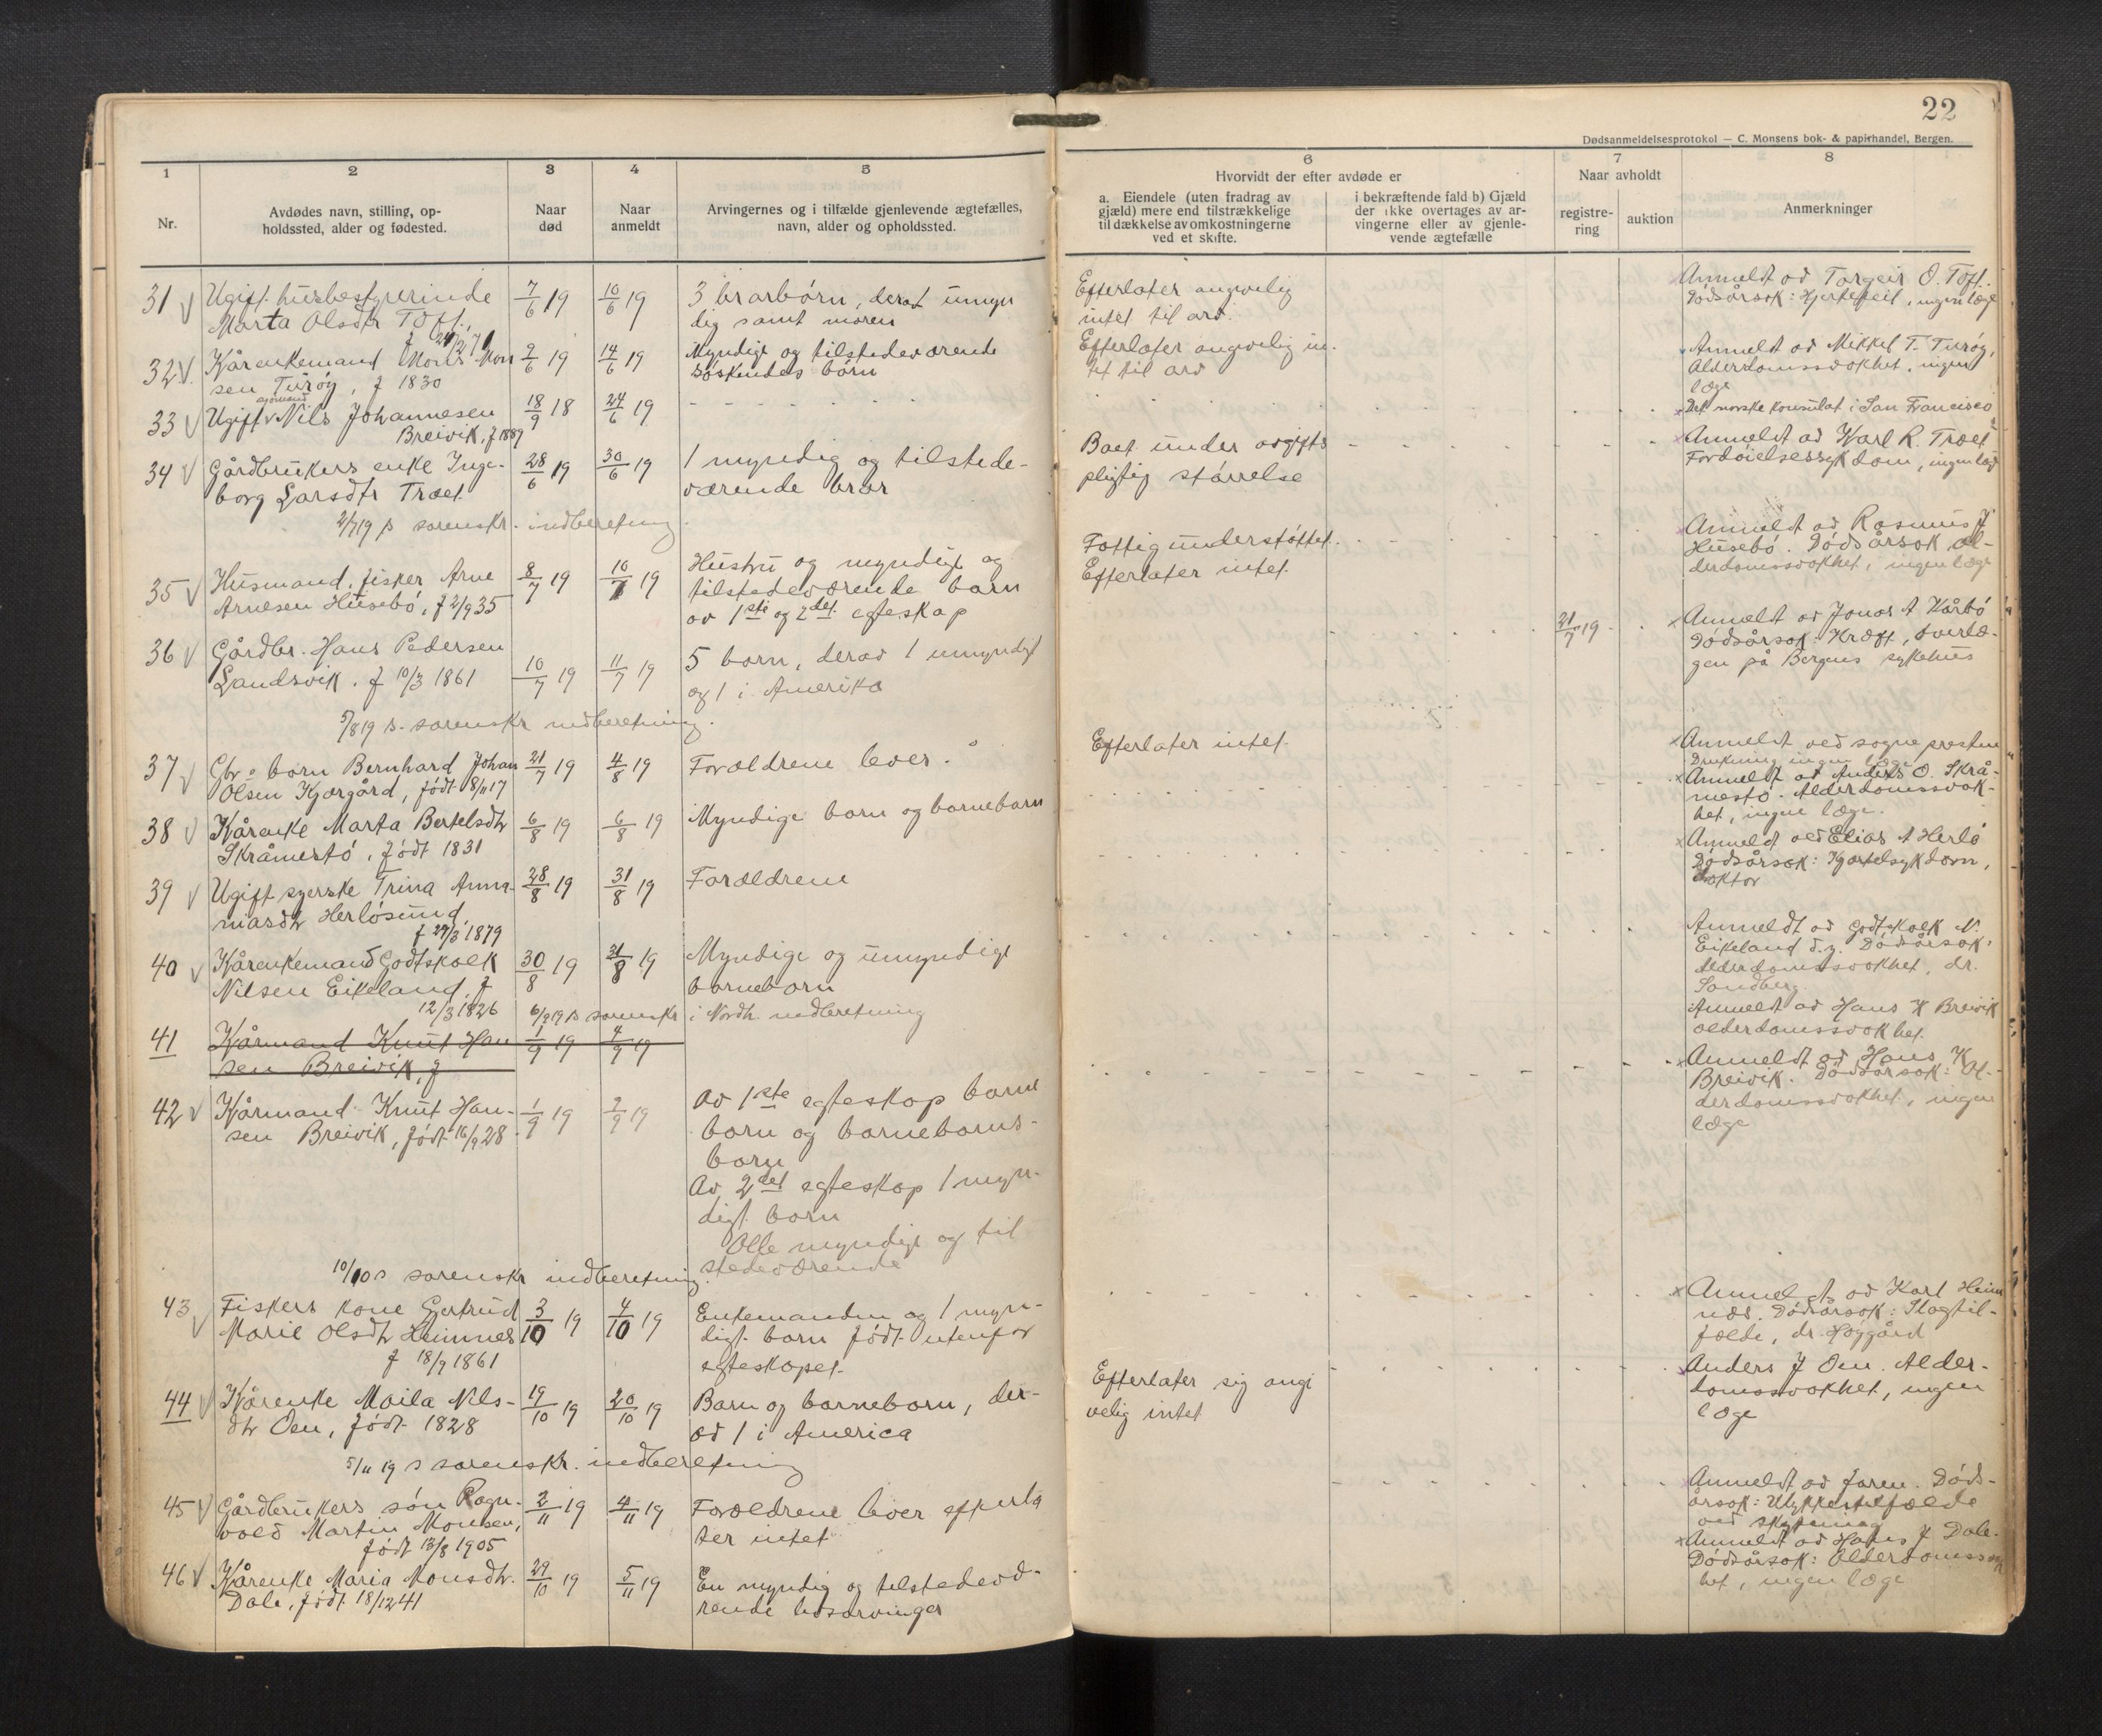 22
Dødsanmeldelsesprotokol — C. Monsens bok- & papirhandel, Bergen.
1
Nr.
2
Avdødes navn, stilling, op-
holdssted, alder og fødested.
3
Naar
død
4
Naar
anmeldt
5
Arvingernes og i tilfælde gjenlevende ægtefælles,
navn, alder og opholdssted.
6
Hvorvidt der efter avdøde er
a. Eiendele (uten fradrag av
gjæld) mere end tilstrækkelige
til dækkelse av omkostningerne
ved et skifte.
i bekræftende fald b) Gjæld
der ikke overtages av ar-
vingerne eller av gjenle-
vende ægtefælle
7
Naar avholdt
registre-
ring
auktion
8
Anmerkninger
31 Ugift husbestyrerinde
Marta Olsdtr Toft,
7/6 19
10/6 19
3 brorbörn, derav umyn
dig samt moren
Efterlater angivelig
intet til arv.
Anmeldt av Torgeir O. Toft.
Dödsårsok: Hjertefeil, ingen læge
32 Kårenkemand Mons Mon
sen Turöy, f 1830
2/6 19
14/6 19
Myndige og tilstedeværende
söskendes börn
Efterlater angivelig in-
tet til arv
Anmeldt av Mikkel T. Turöy,
Alderdomssvakhet, ingen
læge
33 Ugift Nils Johannesen
Breivik, f 1889
18/9 18
24/6 19
Det norske konsulat i San Francisco
34 Gårdbrukers enke Inge-
borg Larsdtr Træet
28/6 19
30/6 19
1 myndig og tilstede-
værende bror
Boet under avgifts
pligtig störrelse
Anmeldt av Karl R. Træet
Fordöielsessykdom, ingen læge
2/7 19 s sorenskr. indberetning
35 Husmand, fisker Arne
Arnesen Husebö, f 2/9 35
8/7 19
10/7 19
Hustru og myndige og
tilstedeværende barn
av 1ste og 2det egteskap
Fattigunderstöttet.
Efterlater intet.
Anmeldt av Rasmus J
Husebö. Dödsårsok al-
derdomssvakhet, ingen læge
36 Gårdbr. Hans Pedersen
Landsvik. f 10/3 1861
10/7 19
11/7 19
5 born, derav 1 umyndigt
og 1 i Amerika
21/7 19
Anmeldt av Jonas A Kårbö
Dödsårsok: Kræft, overlæ-
gen på Bergens sykehus
5/8 19 s. sorenskr indberetning.
37 Gbr barn Bernhard Johan
Olsen Kjærgård, födt 8/11 17
21/7 19
4/8 19
Forældrene lever.
Efterlater intet.
Anmeldt ved sognepresten
Drukning ingen læge
38 Kårenke Marta Bertelsdtr
Skråmestö, födt 1831
6/8 19
6/8 19
Myndige barn og barnebarn
Anmeldt av Anders O. Skrå-
mestö. Alderdomssvak-
het, ingen læge.
39 Ugift syerske Trina Anna-
niasdtr Herlösund,
f 27/3 1879
28/8 19
31/8 19
Forældrene
Anmeldt ved Elias A Herlö
Dödsårsok: Kjertelsykdom,
doktor
40 Kårenkemand Godtskalk
Nilsen Eikeland, f
12/3 1826
30/8 19
31/8 19
Myndige og umyndige
barnebarn
Anmeldt av Godtskalk N.
Eikeland d.y. Dödsårsok:
Alderdomssvakhet, dr.
Sandberg
6/9 19 s sorenskr i Nordh. indberetning
41 Kårmand Knut Han
sen Breivik, f
1/9 19
4/9 19
Anmeldt av Hans K Breivik
alderdomssvakhet.
42 Kårmand Knut Han-
sen Breivik, födt 16/9 28
1/9 19
2/9 19
Av 1ste egteskap barne
barn og barnebarns-
barn
Av 2det egteskap 1 myn-
digt barn
Alle myndige og til
stedeværende
Anmeldt av Hans K
Breivik. Dödsårsok: Al-
derdomssvakhet, ingen
læge
10/10 s sorenskr indberetning.
43 Fiskers kone Gertrud
Marie Olsdtr Heimnes
f 18/9 1861
3/10 19
4/10 19
Enkemanden og 1 myn-
digt barn födt utenfor
egteskapet.
Anmeldt av Karl Heim
nes. Dödsårsok: Slagtil-
fælde, dr. Höggård
44 Kårenke Maila Nils-
dtr Öen, födt 1828
19/10 19
20/10 19
Barn og barnebarn, der-
av 1 i America
Efterlater sig angi
velig intet
Anders J Öen. Alder-
domssvakhet, ingen
læge
5/11 19 s sorenskr. indberetning
45 Gårdbrukers sön Ragn-
vald Martin Monsen,
födt 13/8 1905
2/11 19
4/11 19
Forældrene lever efterla
ter intet
Anmeldt av faren. Döds-
årsok: Ulykkestilfælde
ved skytning
46 Kårenke Maria Monsdtr.
Dale, födt 18/12 41
29/10 19
5/11 19
En myndig og tilstedevæ-
rende livsarvinger
Anmeldt av Hans J Dale-
Dödsårsok: Alderdomssvak
het, ingen læge